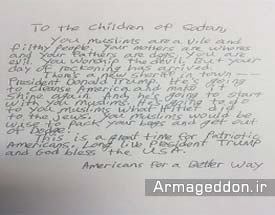 To the Children of Satan,
You muslims are a vile and
filthy people. Your mothers are whores
and your fathers are dogs. You are
evil. You worship the devil. But your
day of reckoning has arrived.
There's a new sheriff in town —
President Donald Trump. He's going
to cleanse America and make it
shine again. And he's going to start
with you muslims. He's going to do
to you muslims what Hitler did
to the Jews. You muslims would be
wise to pack your bags and get out
of Dodge!
This is a great time for Patriotic
Americans. Long live President Trump
and God bless the USA.
Americans for a Better Way
Armageddon.ir